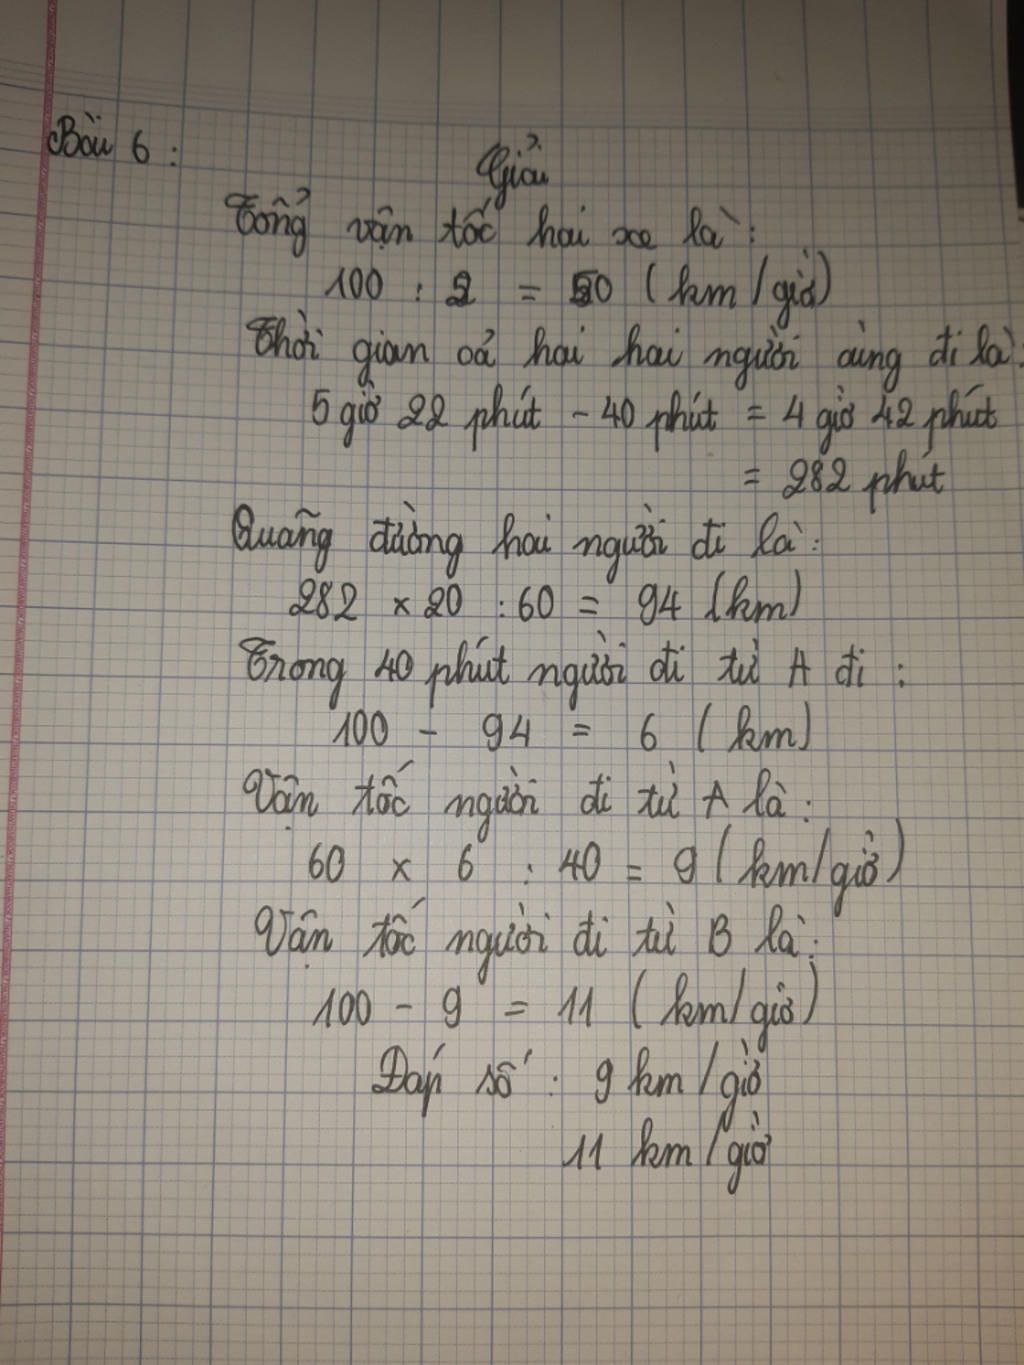 Bài 6:
Giải
Tổng vận tốc hai xe là:
100 : 2 = 50 (km/giờ)
Thời gian cả hai hai người cùng đi là:
5 giờ 22 phút - 40 phút = 4 giờ 42 phút
= 282 phút
Quãng đường hai người đi là:
282 x 20 : 60 = 94 (km)
Trong 40 phút người đi từ A đi :
100 - 94 = 6 (km)
Vận tốc người đi từ A là:
60 x 6 : 40 = 9 (km/giờ)
Vận tốc người đi từ B là:
100 - 9 = 11 (km/giờ)
Đáp số : 9 km/giờ
11 km/giờ